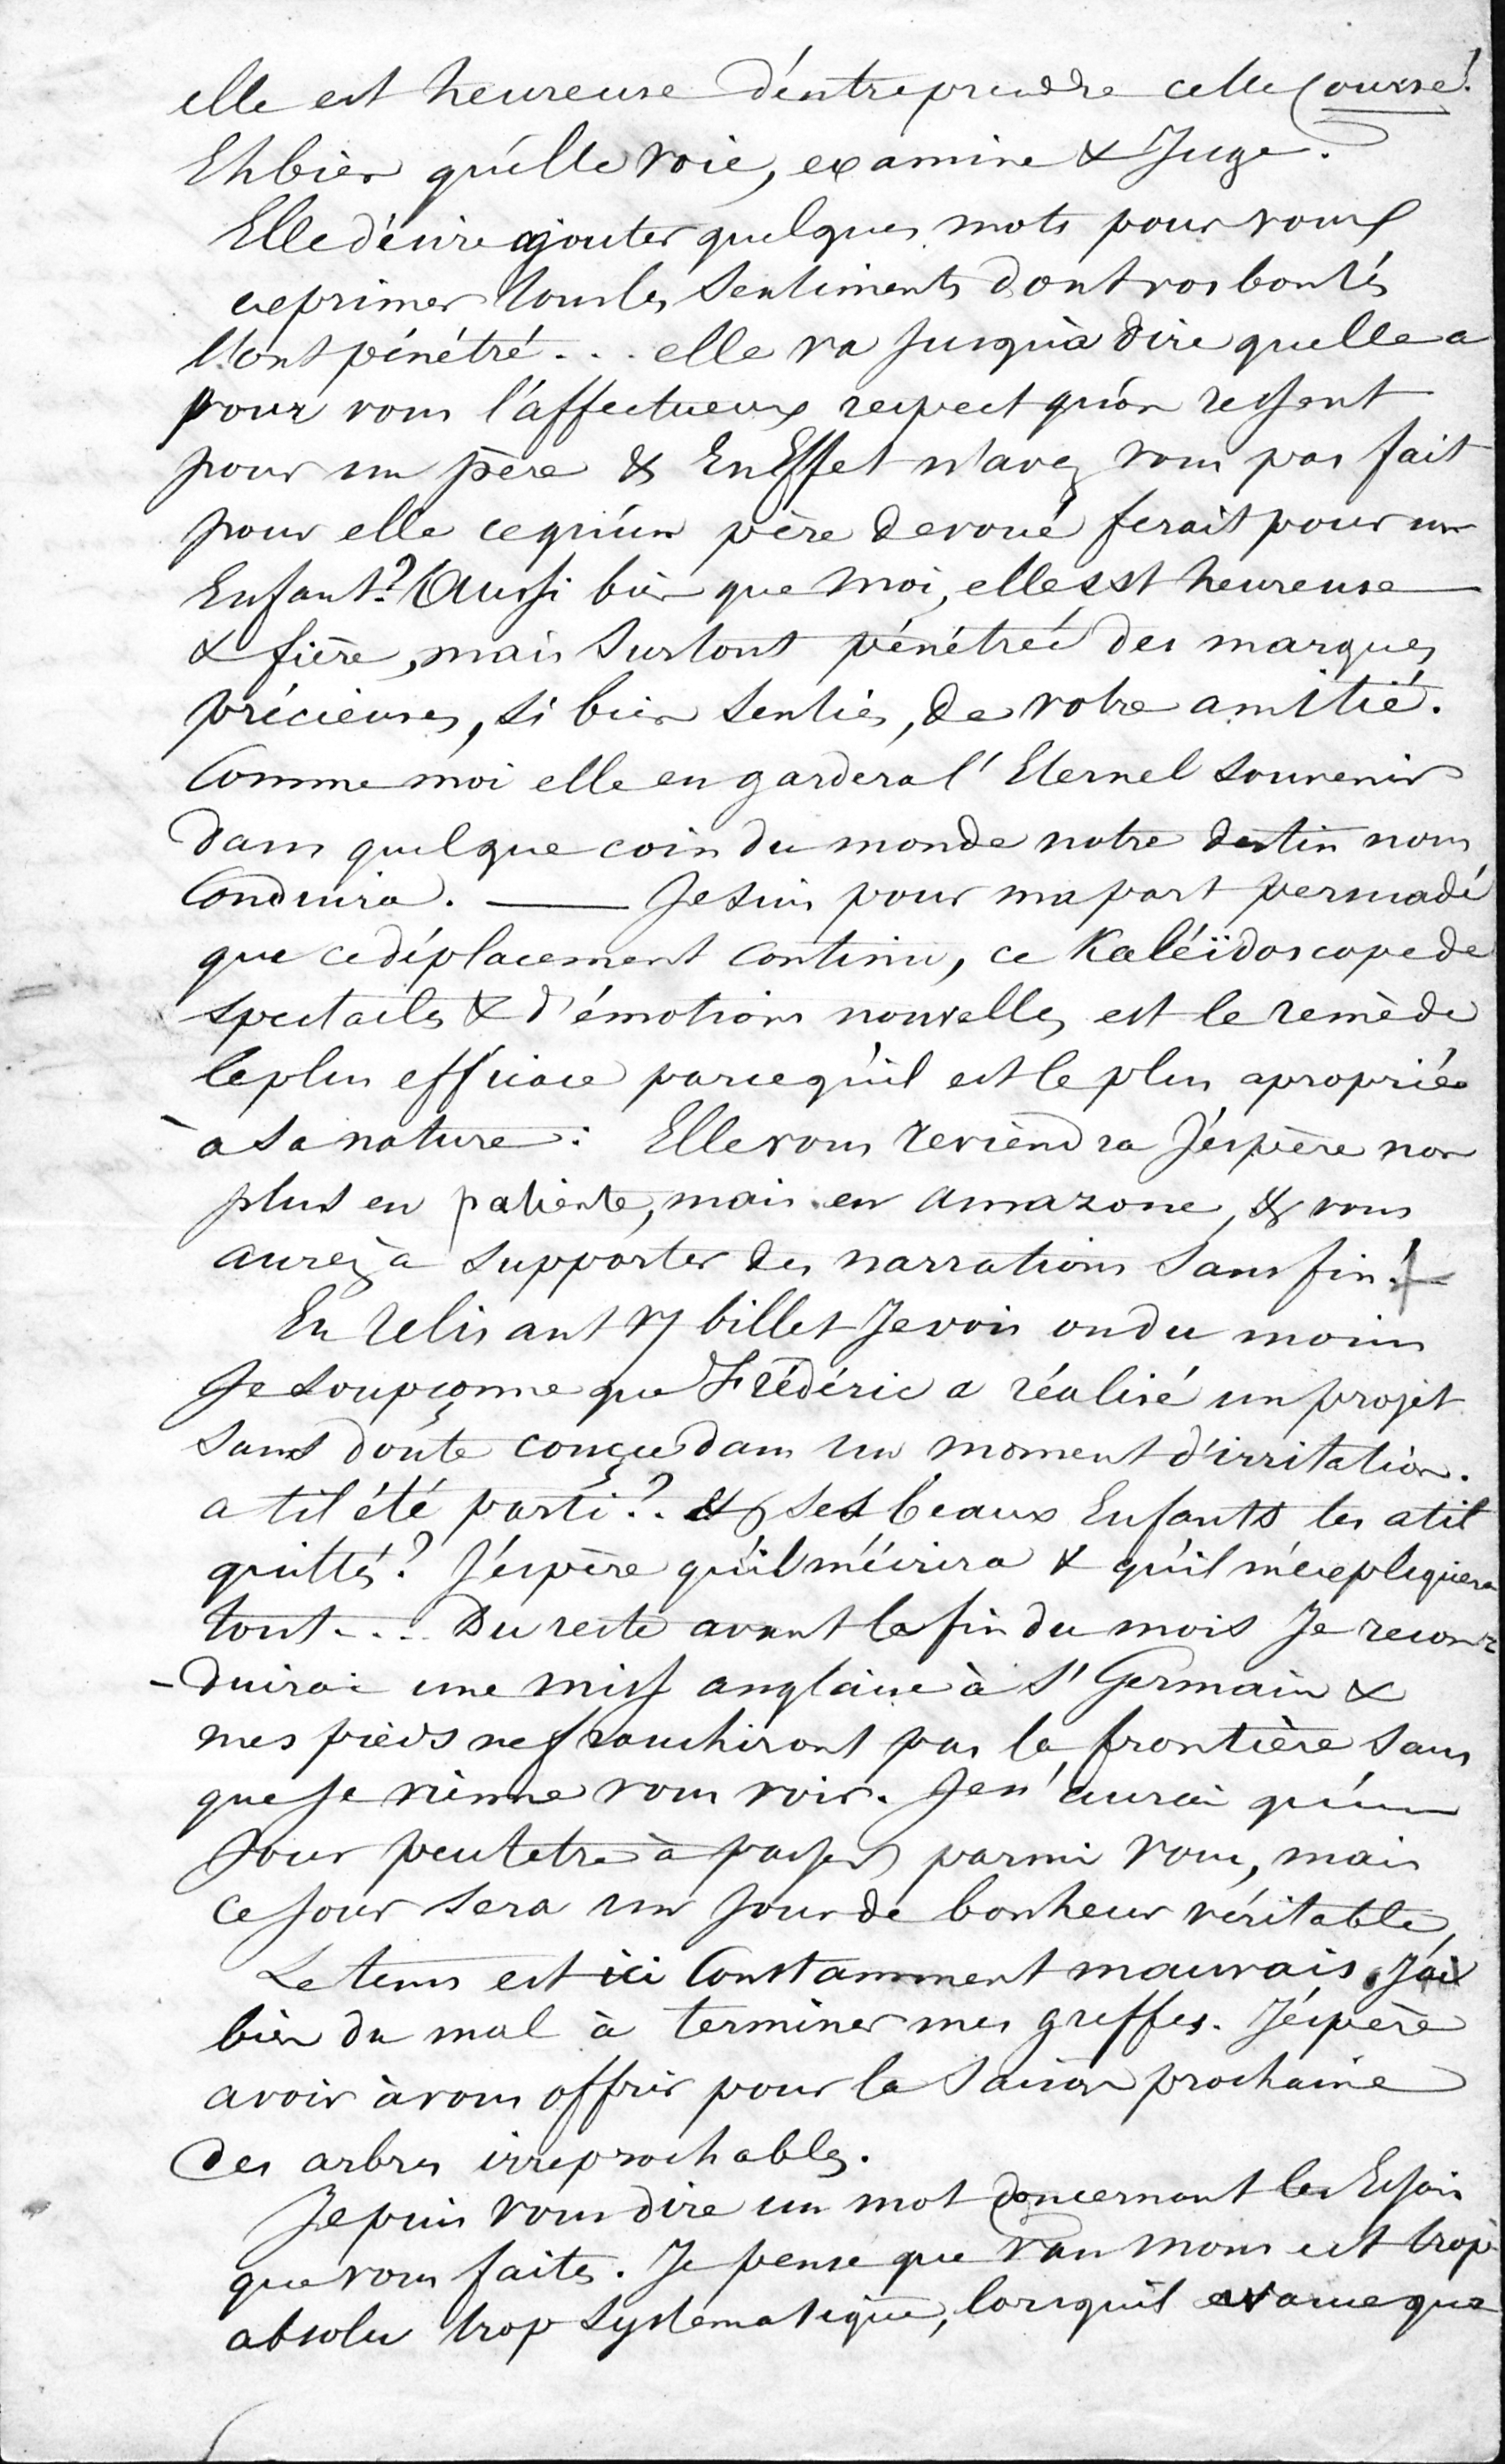 elle est heureuse d'entreprendre cette Course!
Eh bien qu'elle voie, examine & Juge.
Elle désire ajouter quelques mots pour vous
exprimer tous les Sentiments dont vos bontés
l'ont pénétré... elle va Jusqu'à dire quelle a
pour vous l'affectueux respect qu'on ressent
pour un père & En Effet n'avez vous pas fait
pour elle ce qu'un père devoué ferait pour un
Enfant? Aussi bien que moi, elle est heureuse
& fière, mais Surtout pénétrée des marques
précieuses, si bien senties, de votre amitié.
Comme moi elle en gardera l'Eternel souvenir
dans quelque coin du monde notre destin nous
Conduira. — Je suis pour ma part persuadé
que ce déplacement continu, ce Kaléïdoscope de
spectacles & d'émotions nouvelles, est le remède
le plus efficace parcequ'il est le plus aproprié
à sa nature: Elle vous reviendra J'espère non
plus en patiente, mais en amazone, & vous
aurez à supporter des narrations sans fin!
En relisant v/ billet Je vois ou du moins
Je soupçonne que Frédéric a réalisé un projet
sans doute conçu dans un moment d'irritation.
a til été parti?. & ses beaux Enfants les atil
quittés? J'espère qu'il m'écrira & qu'il m'expliquera
tout... Du reste avant la fin du mois Je recon
-duirai une miss anglaise à St Germain &
mes pieds ne franchiront pas la frontière sans
que Je vienne vous voir. Je n'aurai qu'un
Jour peutetre à passer parmi vous, mais
ce Jour sera un Jour de bonheur véritable,
Le tems est ici Constamment mauvais. J'ai
bien du mal à terminer mes greffes. J'espère
avoir à vous offrir pour la Saison prochaine
des arbres irréprochables.
Je puis vous dire un mot concernant les Essais
que vous faites. Je pense que Van Mons est trop
absolu trop systématique, lorsquil avance que